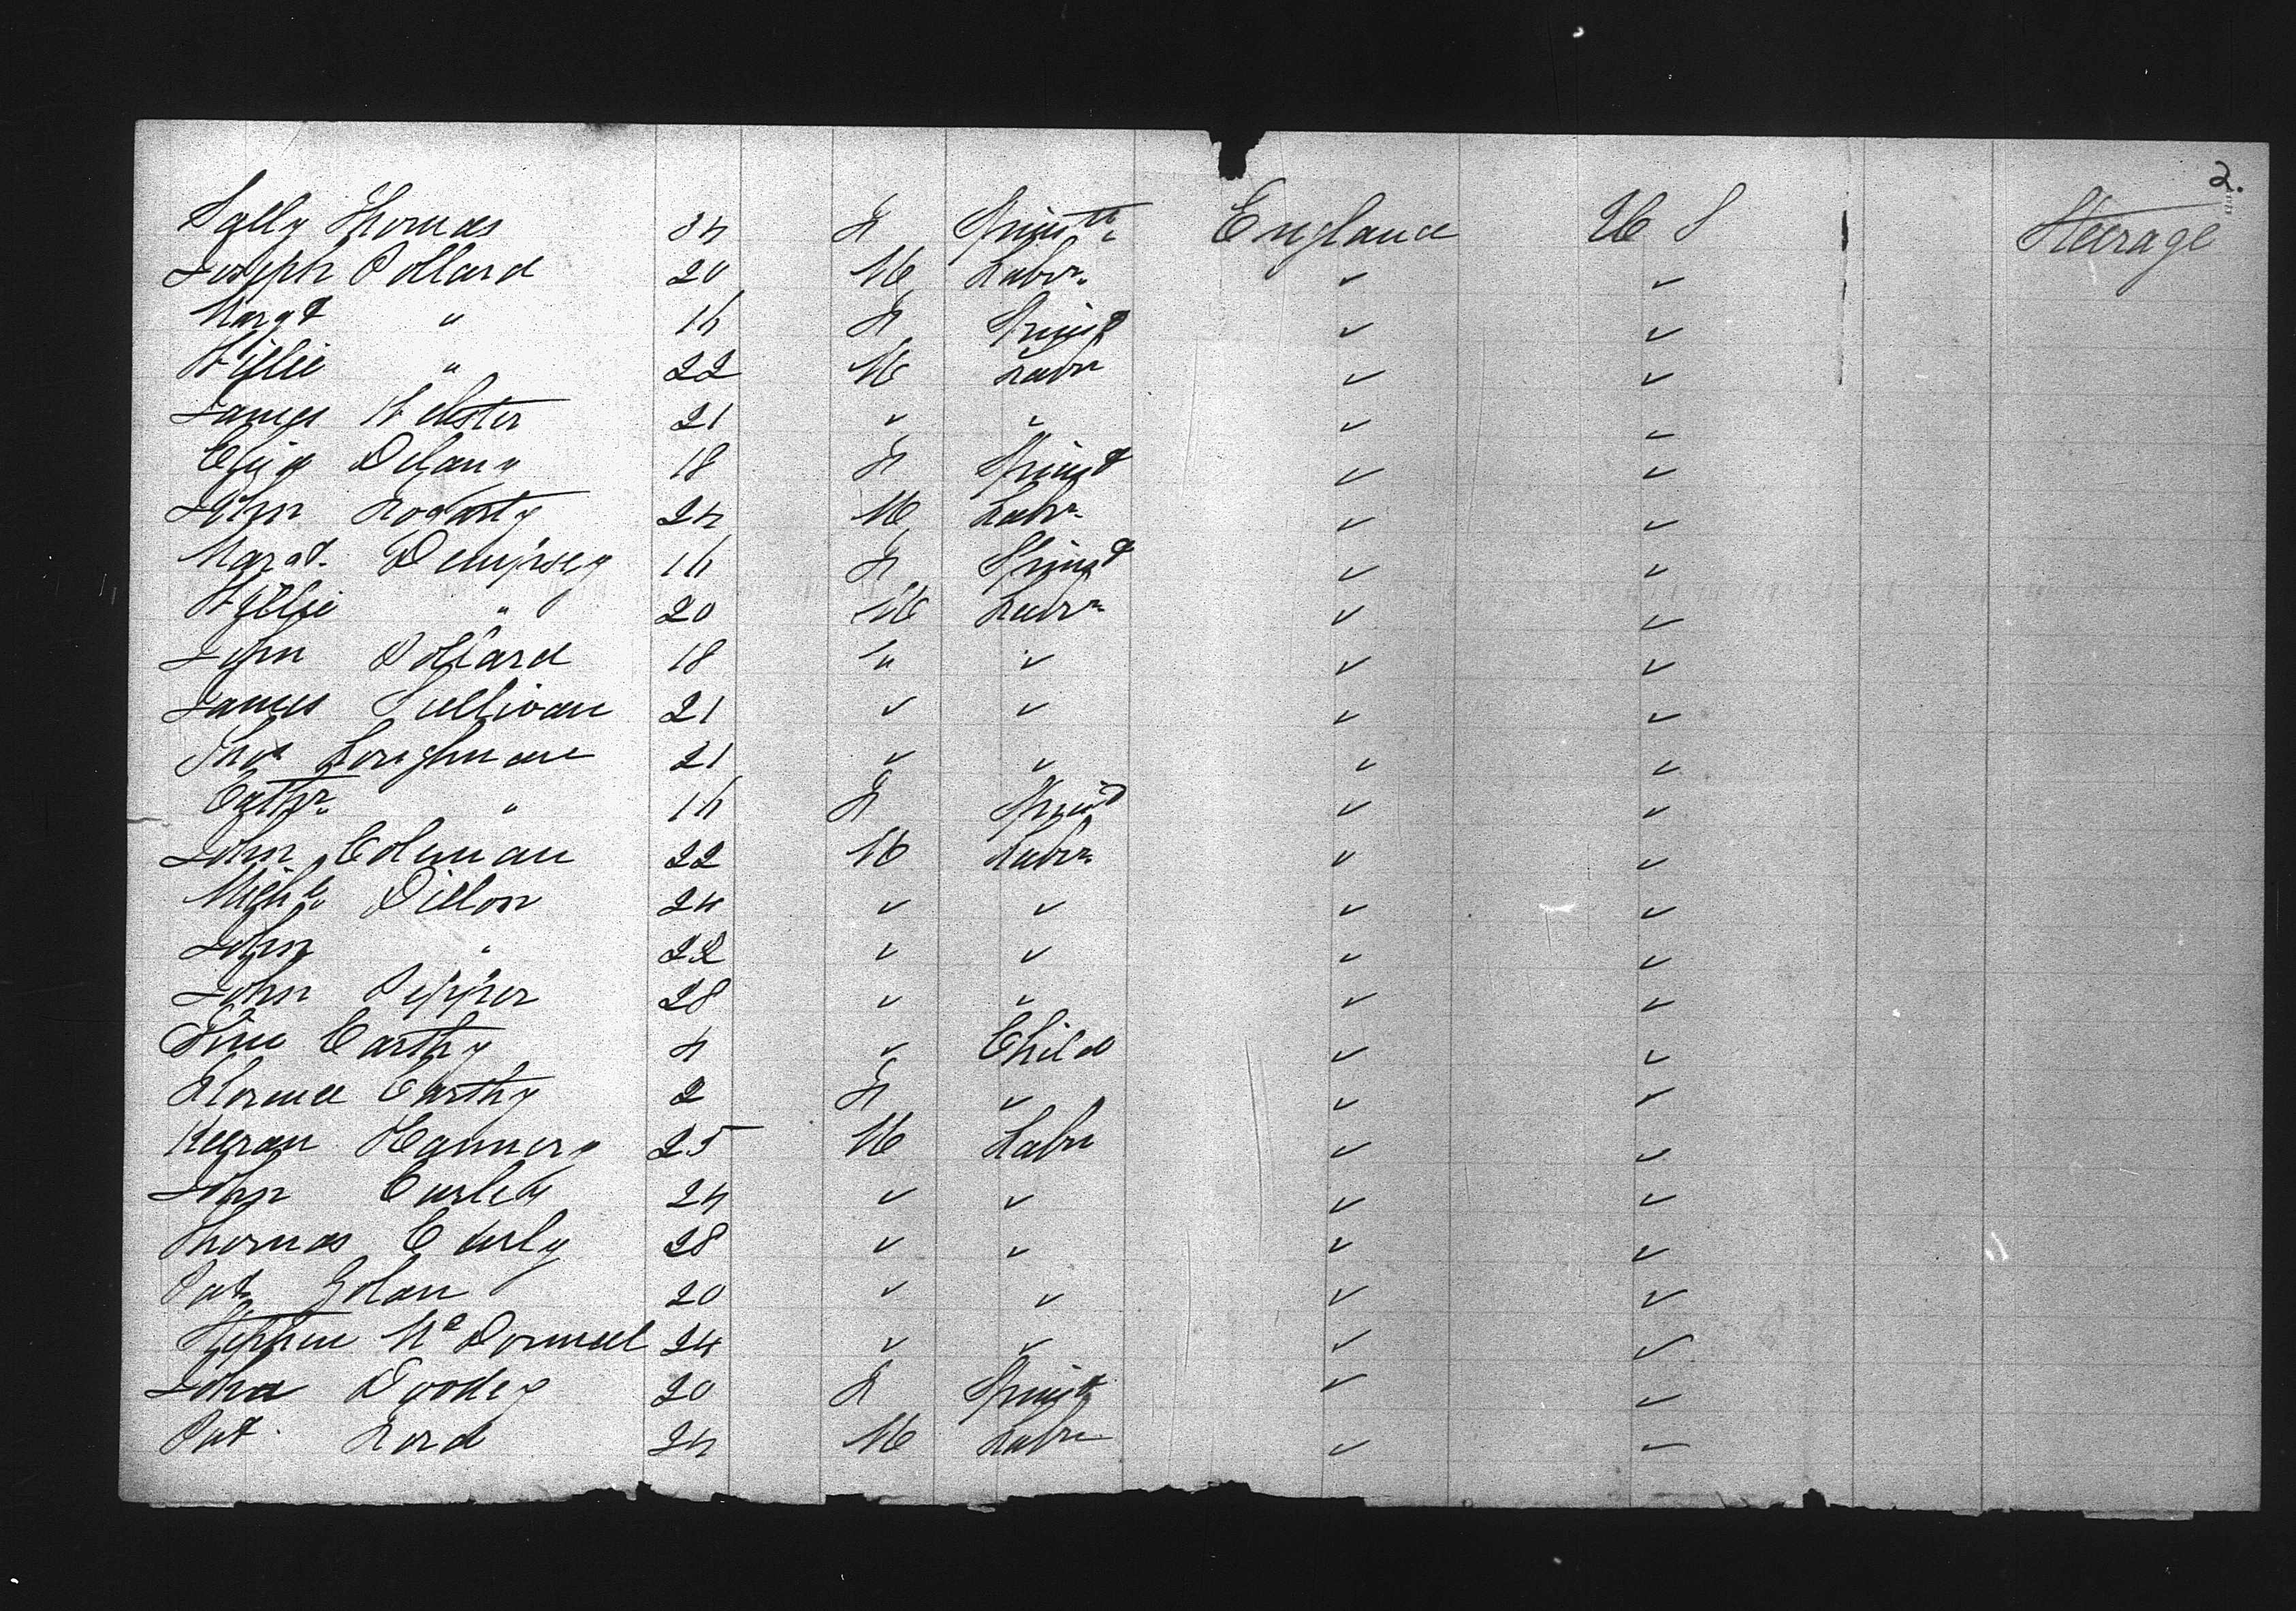 2.
Sally Thomas 34 F Spinstr. England U S Steerage
Joseph Pollard 20 M Labr. ✓ ✓
Margt " 16 F Spinst ✓ ✓
Willie " 22 M Labr ✓ ✓
James Webster 21 ✓ ✓ ✓ ✓
Eliza Delany 18 F Spinst ✓ ✓
John Fogarty 24 M Labr. ✓ ✓
Margt. Dempsey 16 F Spinst ✓ ✓
Willie " 20 M Labr. ✓ ✓
John Pollard 18 " ✓ ✓ ✓
James Sullivan 21 ✓ ✓ ✓ ✓
Thos Loughnane 21 ✓ ✓ ✓ ✓
Cathr. " 16 F Spinst ✓ ✓
John Coleman 22 M Labr. ✓ ✓
Michl. Dillon 24 ✓ ✓ ✓ ✓
John " 22 ✓ ✓ ✓ ✓
John Pepper 28 ✓ ✓ ✓ ✓
Carthy 4 ✓ Child ✓ ✓
Florence Carthy 2 F ✓ ✓ ✓
Keeran 25 M Labr ✓ ✓
John Curley 24 ✓ ✓ ✓ ✓
Thomas Curly 28 ✓ ✓ ✓ ✓
Pat. 20 ✓ ✓ ✓ ✓
Stephen McDonnell 24 ✓ ✓ ✓ ✓
20 F Spinst ✓ ✓
Pat. Ford 24 M Labr ✓ ✓